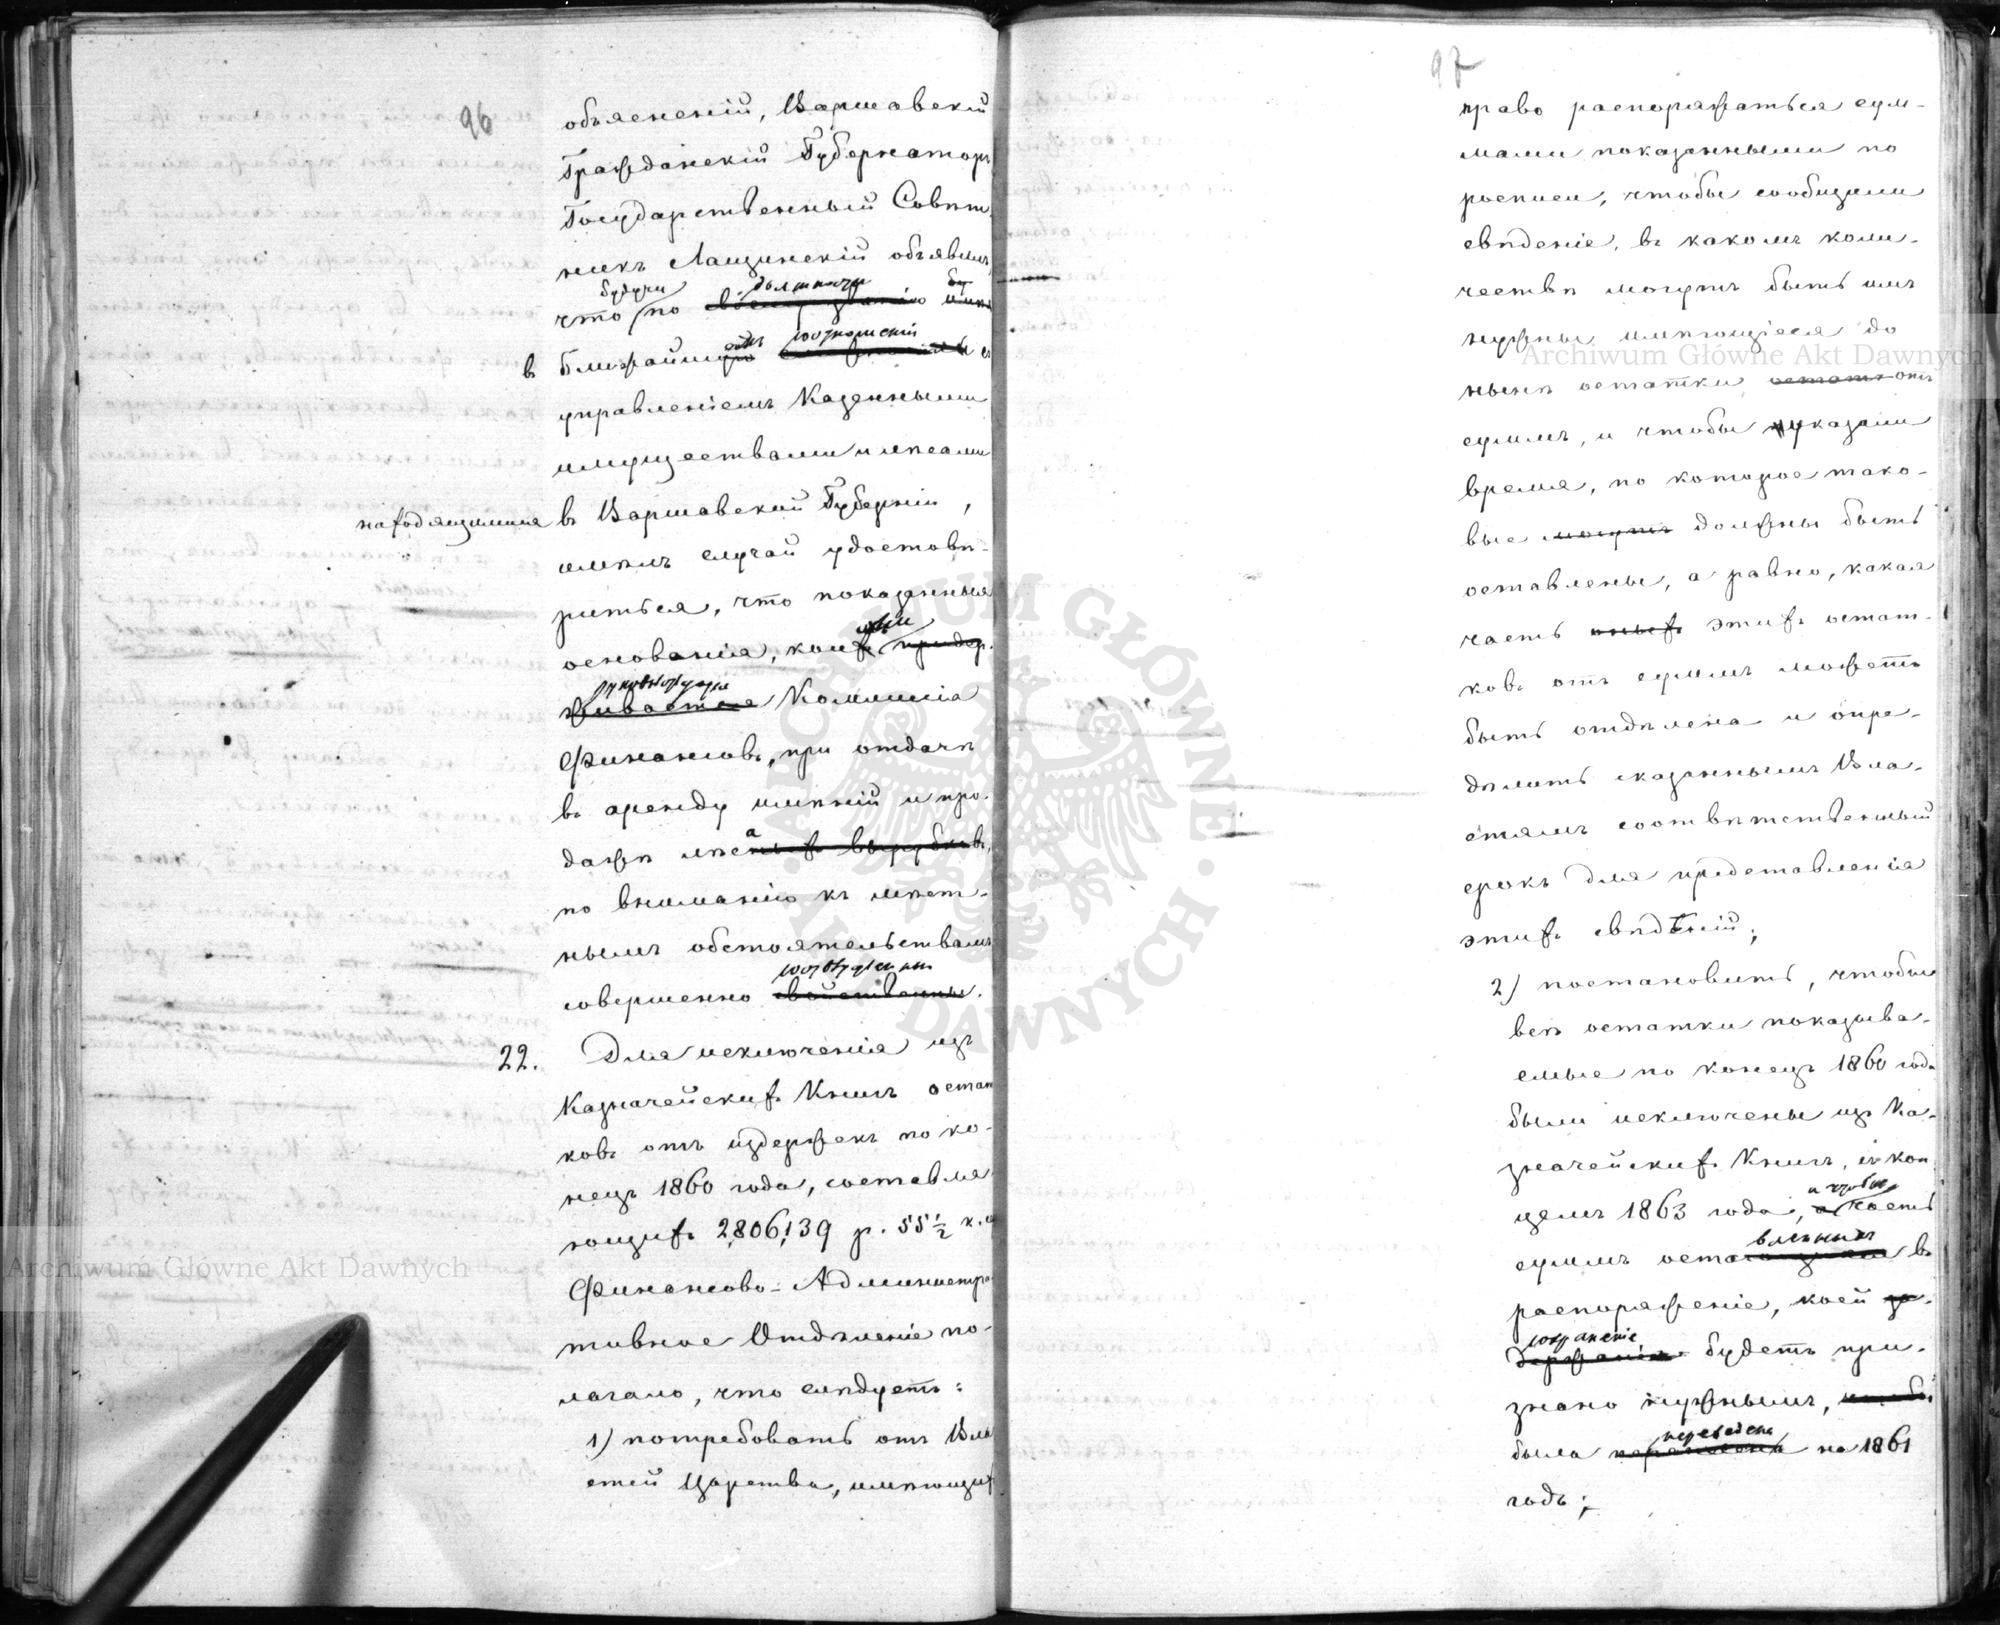 96
объясненій, Варшавскій
Гражданскій Губернаторъ
Государственный Совѣт-
никъ Лащинскій объявилъ,
будучи должности бу
что по своему званію имѣя
емъ соотношеніи
в ближайшемъ съ
управленіемъ Казенными
имуществами и лѣсами
находящимися въ Варшавской Губерніи,
имѣлъ случай удостовѣ-
риться, что показанныя
ми
основанія, коихъ придер-
руководствуется
живается Коммисія
Финансовъ, при отдачѣ
въ аренду имѣній и про-
дажѣ лѣсныхъ вырубковъ,
по вниманію къ мѣст-
нымъ обстоятельствамъ
совершенно свойственны.
22. Для исключенія изъ
Казначейскихъ Книгъ остат
ковъ отъ издержекъ по ко-
нецъ 1860 года, составля
ющихъ 2,806,139 р. 55 1/2 к.
Финансово-Администра
тивное Отдѣленіе по-
лагало, что слѣдуетъ:
1) потребовать отъ Вла
стей Царства, имѣющихъ
97
право распоряжаться сум-
мами показанными по
росписи, чтобы сообщили
свѣденіе, въ какомъ коли-
чествѣ могутъ быть имъ
нужны имѣющіеся до
нынѣ остатки остат отъ
суммъ, и чтобы указали
время, по которое тако-
вые могутъ должны быть
оставлены, а равно, какая
часть оныхъ этихъ остат-
ковъ отъ суммъ можетъ
быть отдѣлена и опре-
дѣлить сказаннымъ Вла-
стямъ соотвѣтственный
срокъ для представленія
этихъ свѣдѣній;
2) постановить, чтобы
всѣ остатки показыва-
емые по конецъ 1860 года
были исключены изъ Ка-
значейскихъ Книгъ, съ кон
и чтобы
цемъ 1863 года, а часть
вленныхъ
суммъ оста въ
распоряженіе, коей за-
сохраненіе
держаніе будетъ при-
знано нужнымъ, чтобы
переведена
была перенесена на 1861
годъ;
Archiwum Główne Akt Dawnych
Archiwum Główne Akt Dawnych
ARCHIWUM GŁÓWNE · AKT DAWNYCH ·